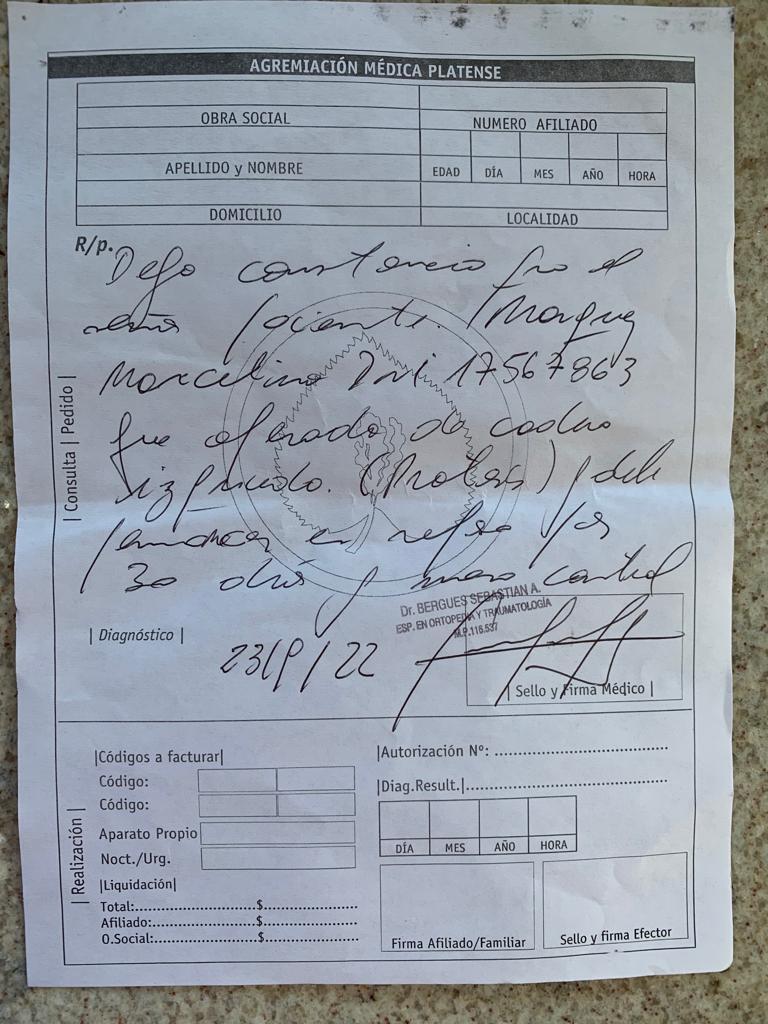 AGREMIACIÓN MÉDICA PLATENSE
OBRA SOCIAL
NUMERO AFILIADO
APELLIDO y NOMBRE
EDAD DÍA MES AÑO HORA
DOMICILIO
LOCALIDAD
R/p.
Dejo constancia que el
paciente.
Marcelino Dni 17567863
fue operado de cadera
izquierda. (Protesis) y debe
permanecer en reposo por
30 días y nuevo control
| Consulta | Pedido |
Dr. BERGUES SEBASTIAN A.
ESP. EN ORTOPEDIA Y TRAUMATOLOGÍA
M.P.116.537
| Diagnóstico |
23/9/22
| Sello y Firma Médico |
|Códigos a facturar|
Código:
Código:
Aparato Propio
Noct./Urg.
|Liquidación|
Total:.....................$.....................
Afiliado:.....................$.....................
O.Social:.....................$.....................
| Realización |
|Autorización Nº: .....................
|Diag.Result.|.....................
DÍA MES AÑO HORA
Firma Afiliado/Familiar
Sello y firma Efector